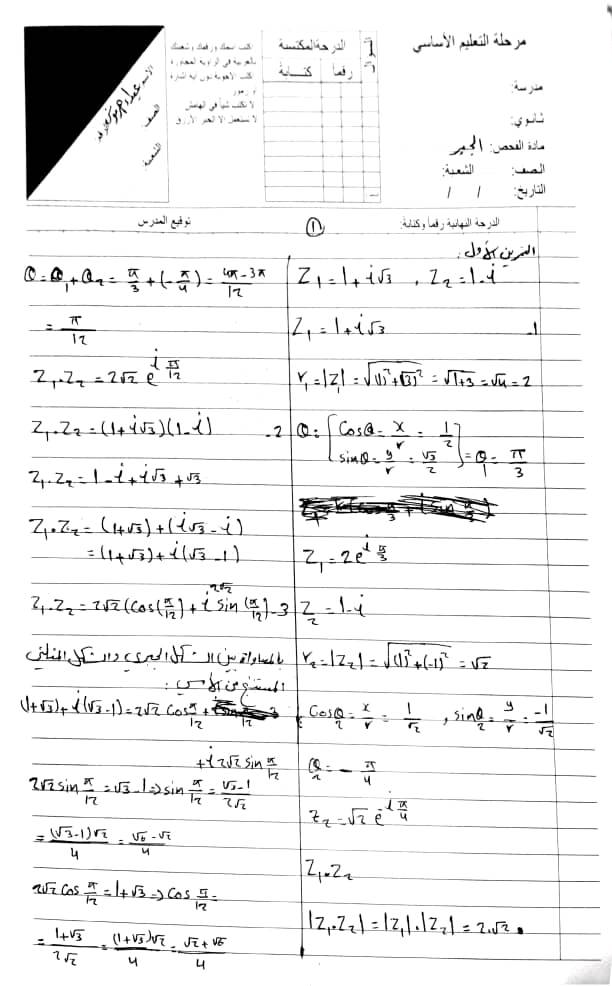 مرحلة التعليم الأساسي
مدرسة:
ثانوي:
مادة الفحص: الجبر
الصف: الشعبة:
التاريخ: / /
الدرجة المكتسبة
رقماً كتابة
اكتب اسمك ورقمك وشعبتك
بالعربية في الزاوية المجاورة
اكتب الأجوبة دون أية إشارة
أو رموز
لا تكتب شيئاً في الهامش
لا تستعمل إلا الحبر الأزرق
الاسم:
الصف:
الشعبة:
الدرجة النهائية رقماً وكتابة:
1
توقيع المدرس
التمرين الأول:
Z₁ = 1 + i√3 , Z₂ = 1 - i
Z₁ = 1 + i√3 -1
r₁ = |Z₁| = √((1)² + (√3)²) = √(1+3) = √4 = 2
θ₁ = { cosθ = x/r = 1/2
sinθ = y/r = √3/2 } = θ₁ = π/3
Z₁ = 2e^(i π/3)
Z₂ = 1 - i
r₂ = |Z₂| = √((1)² + (-1)²) = √2
cosθ₂ = x/r = 1/√2 , sinθ₂ = y/r = -1/√2
θ₂ = - π/4
Z₂ = √2 e^(-i π/4)
Z₁.Z₂
|Z₁.Z₂| = |Z₁|.|Z₂| = 2.√2.
θ = θ₁ + θ₂ = π/3 + (-π/4) = (4π - 3π)/12
= π/12
Z₁.Z₂ = 2√2 e^(i π/12)
Z₁.Z₂ = (1 + i√3)(1 - i) -2
Z₁.Z₂ = 1 - i + i√3 + √3
Z₁.Z₂ = (1+√3) + (i√3 - i)
= (1+√3) + i(√3 - 1)
Z₁.Z₂ = 2√2 (cos(π/12) + i 2√2 sin(π/12) -3
بالمساواة بين الشكل الجبري والشكل المثلثي
المستنتج من الأسي:
(1+√3) + i(√3 - 1) = 2√2 cos π/12
+ i 2√2 sin π/12
2√2 sin π/12 = √3 - 1 ⇒ sin π/12 = (√3 - 1)/(2√2)
= ((√3 - 1)√2)/4 = (√6 - √2)/4
2√2 cos π/12 = 1 + √3 ⇒ cos π/12 =
= (1+√3)/(2√2) = ((1+√3)√2)/4 = (√2 + √6)/4